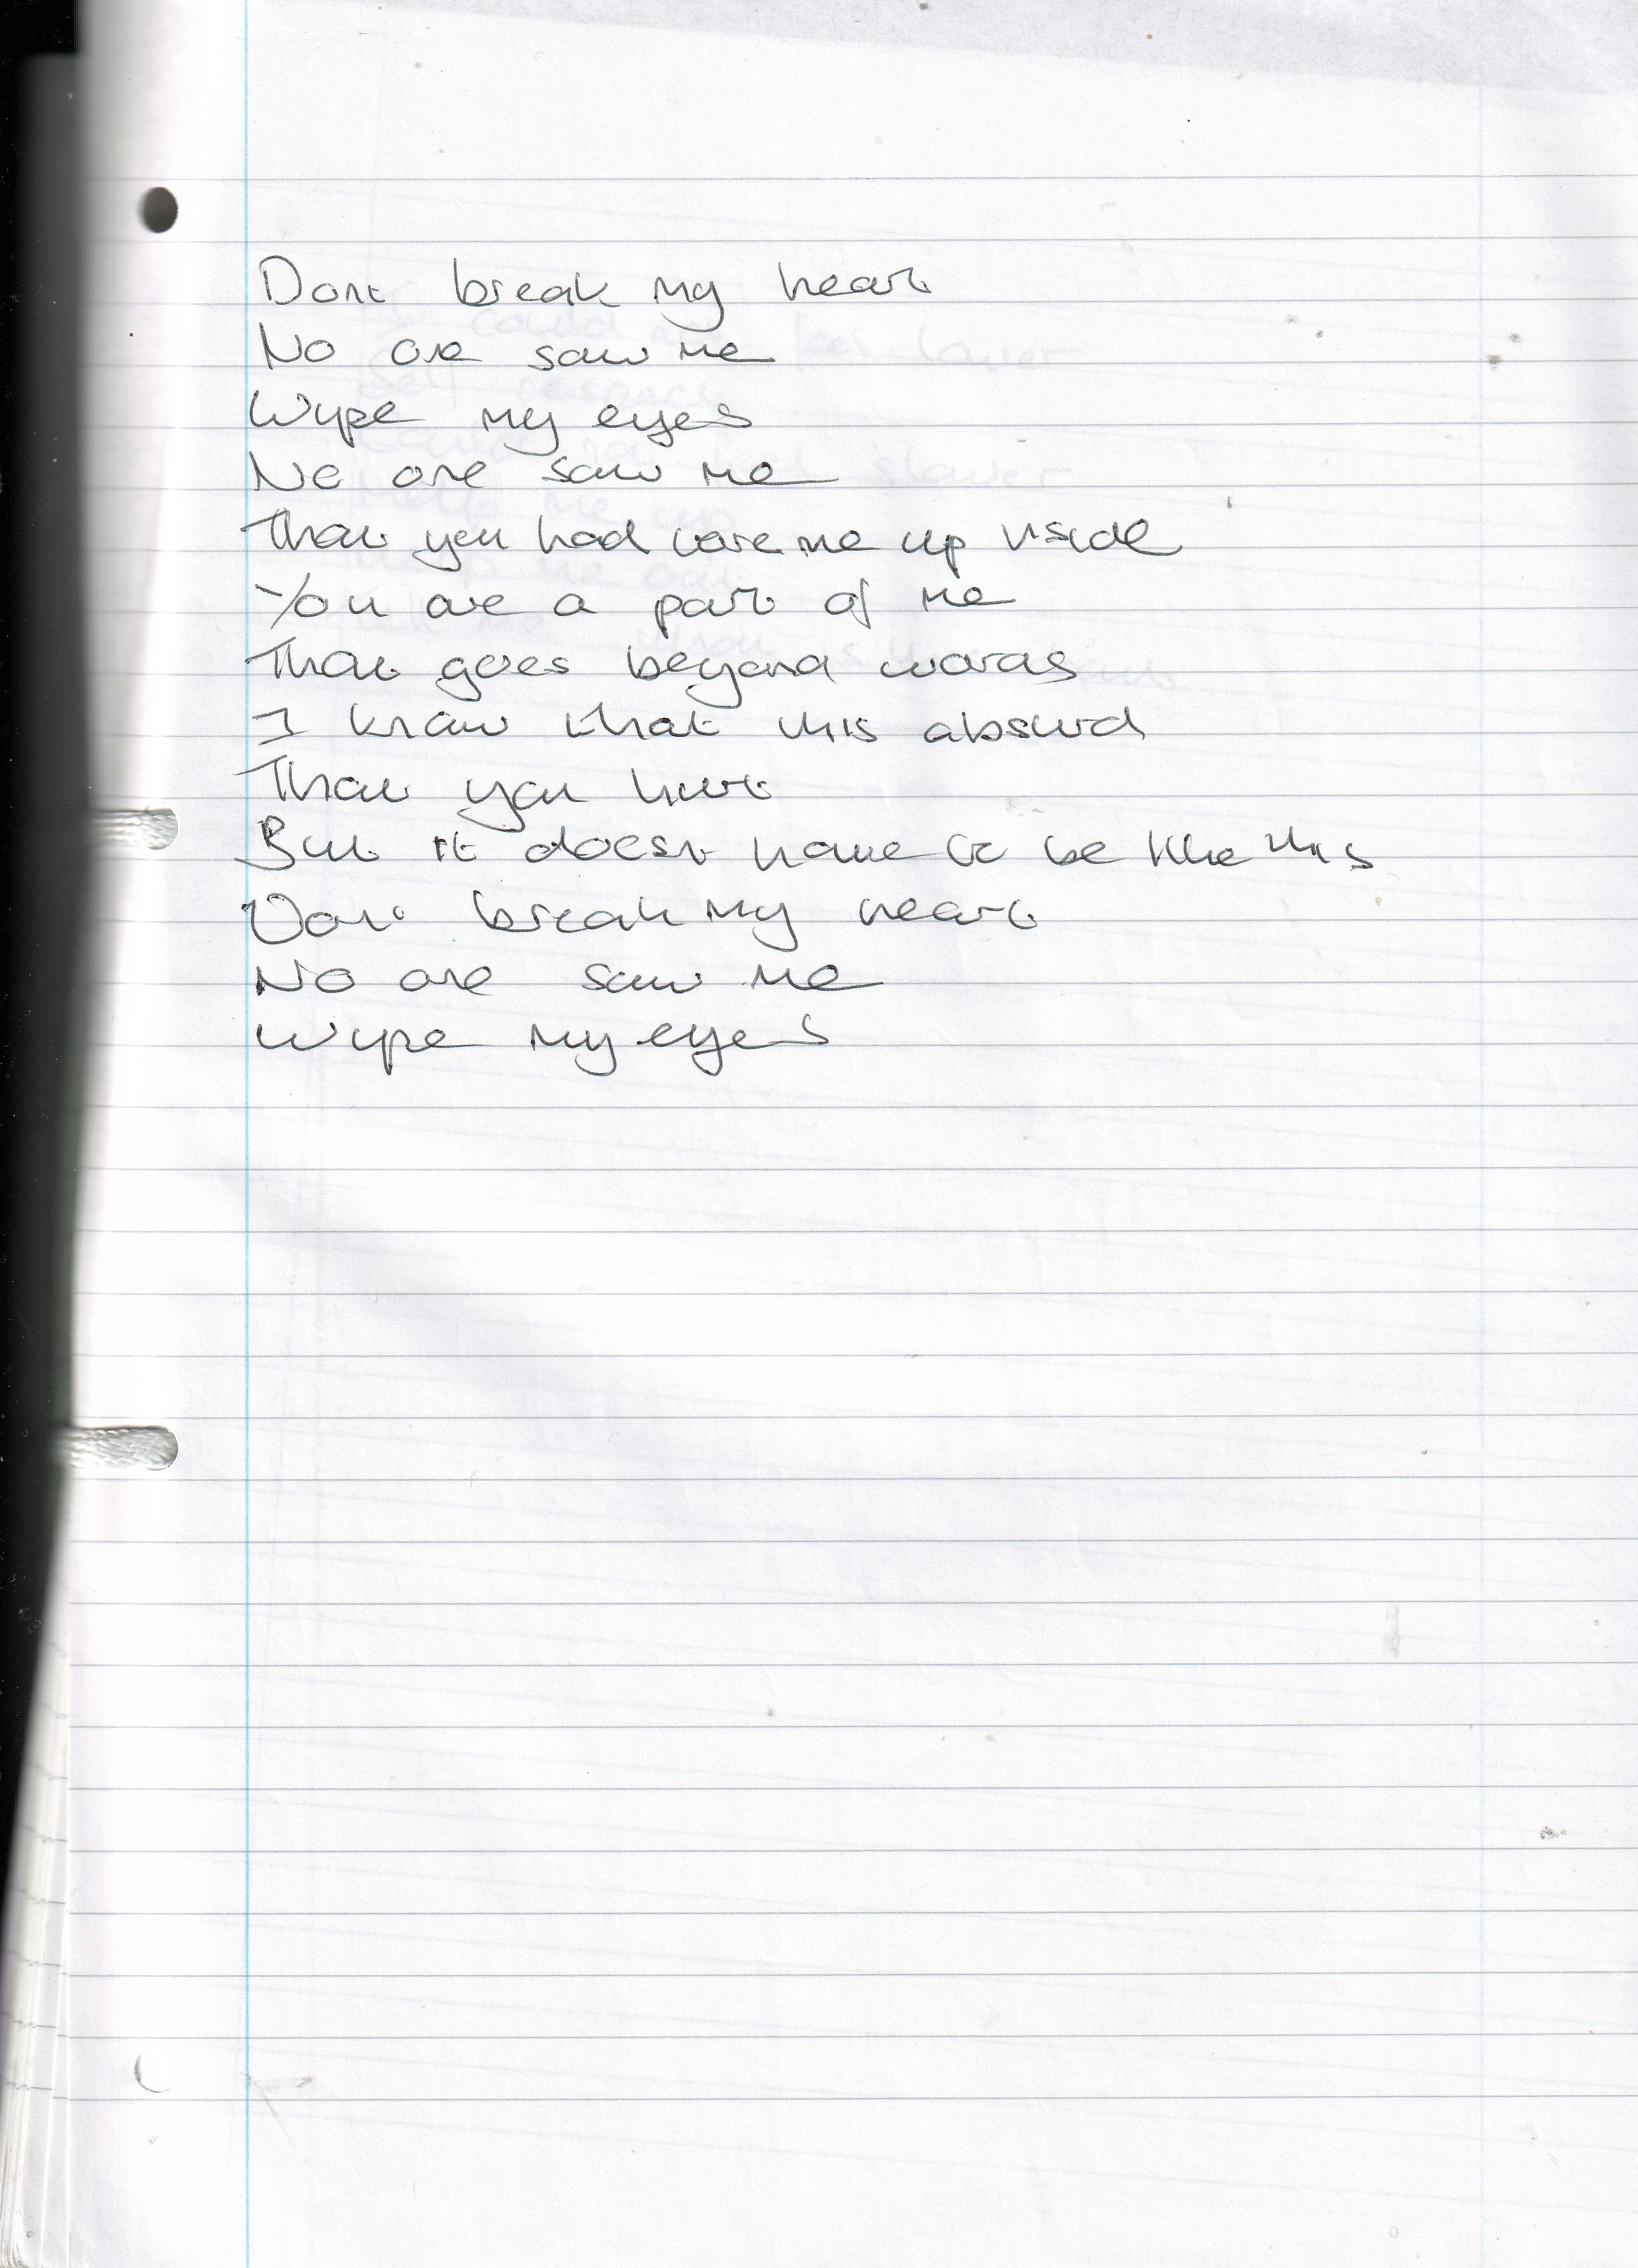 Dont break my heart
No one saw me
Wipe my eyes
No one saw me
That you had tore me up inside
You are a part of me
That goes beyond words
I know that this absurd
That you hurt
But it doesnt have to be like this
Dont break my heart
No one saw me
Wipe my eyes